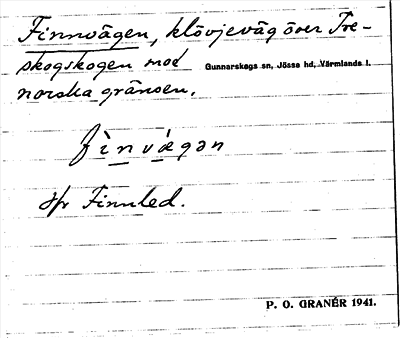 Finnvägen, klövjeväg över Tre-
skogskogen mot Gunnarskogs sn, Jösse hd, Värmlands l.
norska gränsen.
fìnvǽgən
Jfr Finnled.
P. O. GRANÉR 1941.